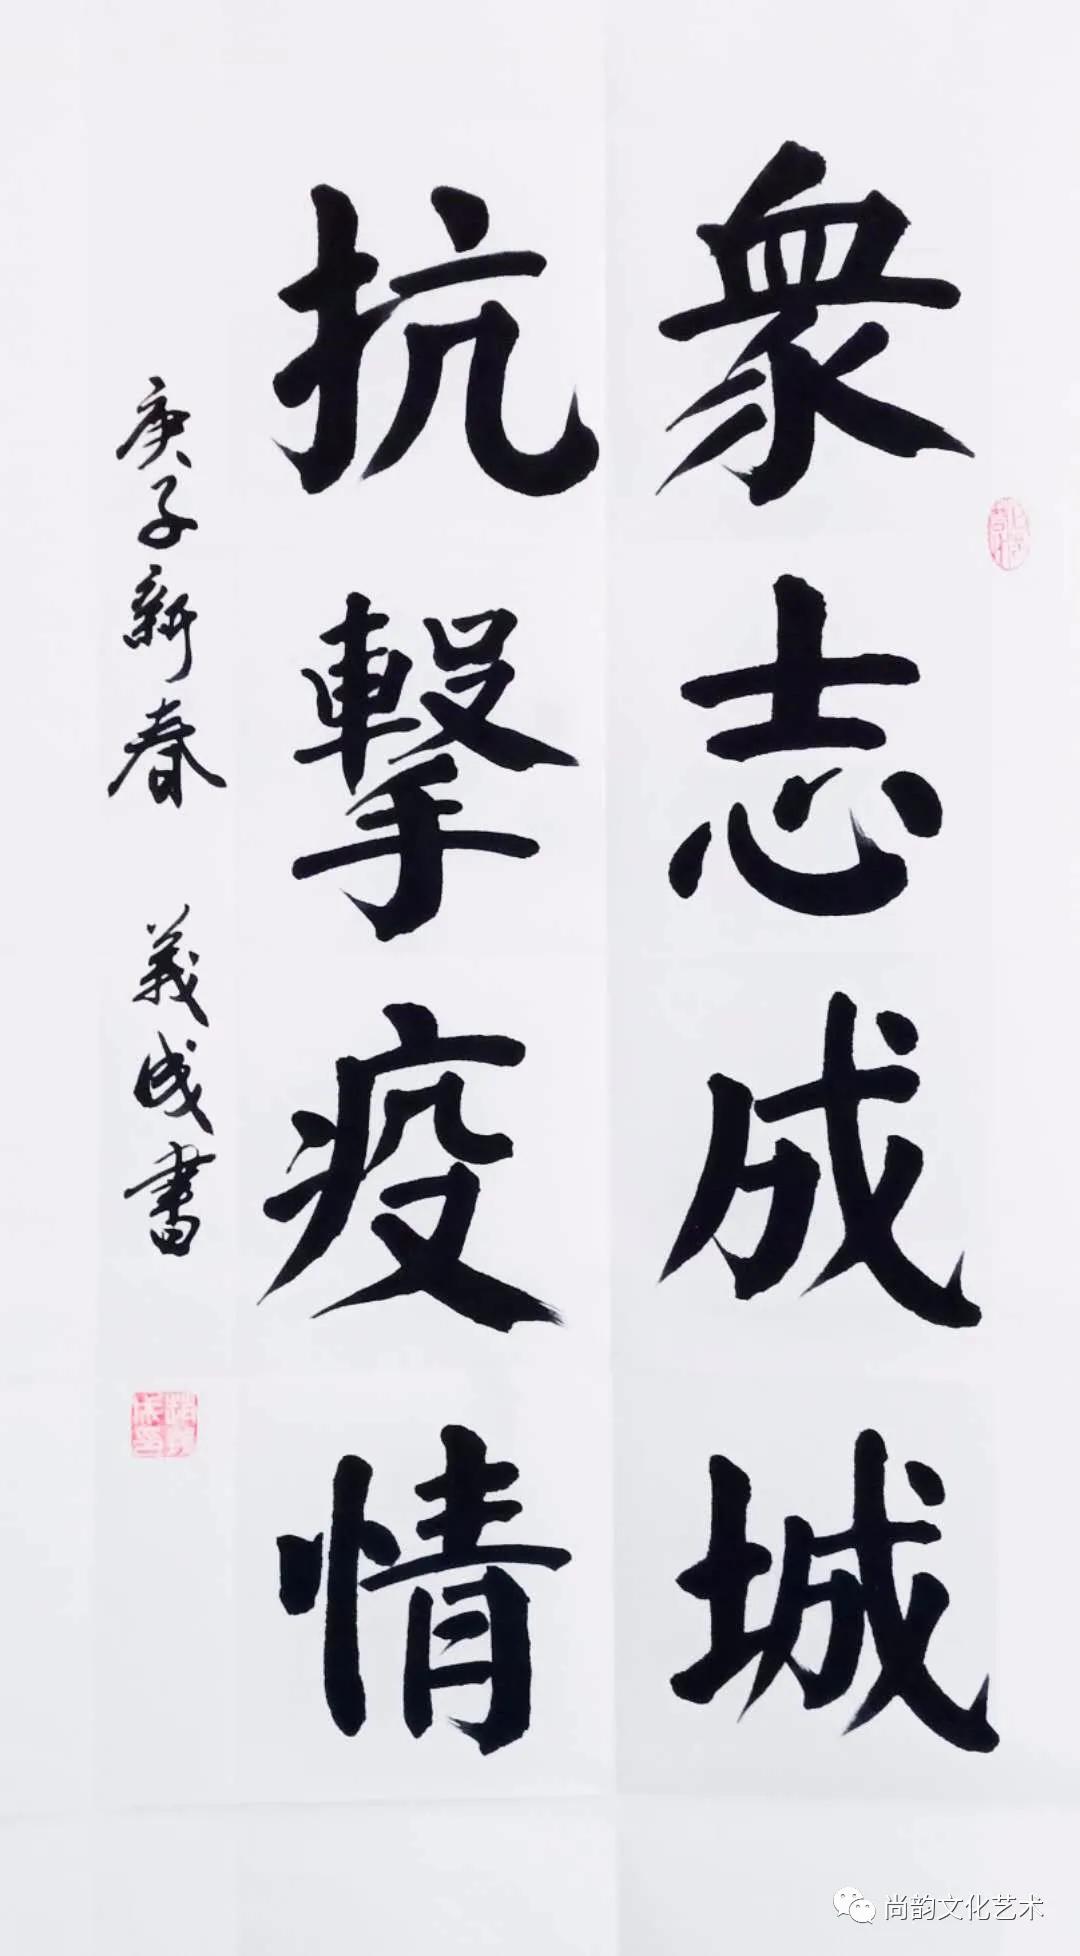 衆志成城
抗擊疫情
庚子新春 義成書
尚韵文化艺术